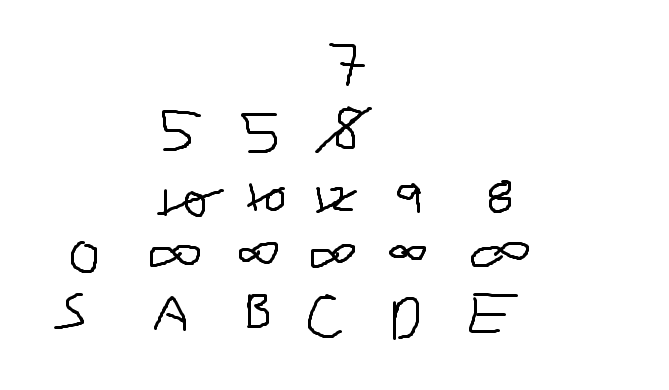 7
5 5 8
10 10 12 9 8
0 ∞ ∞ ∞ ∞ ∞
S A B C D E